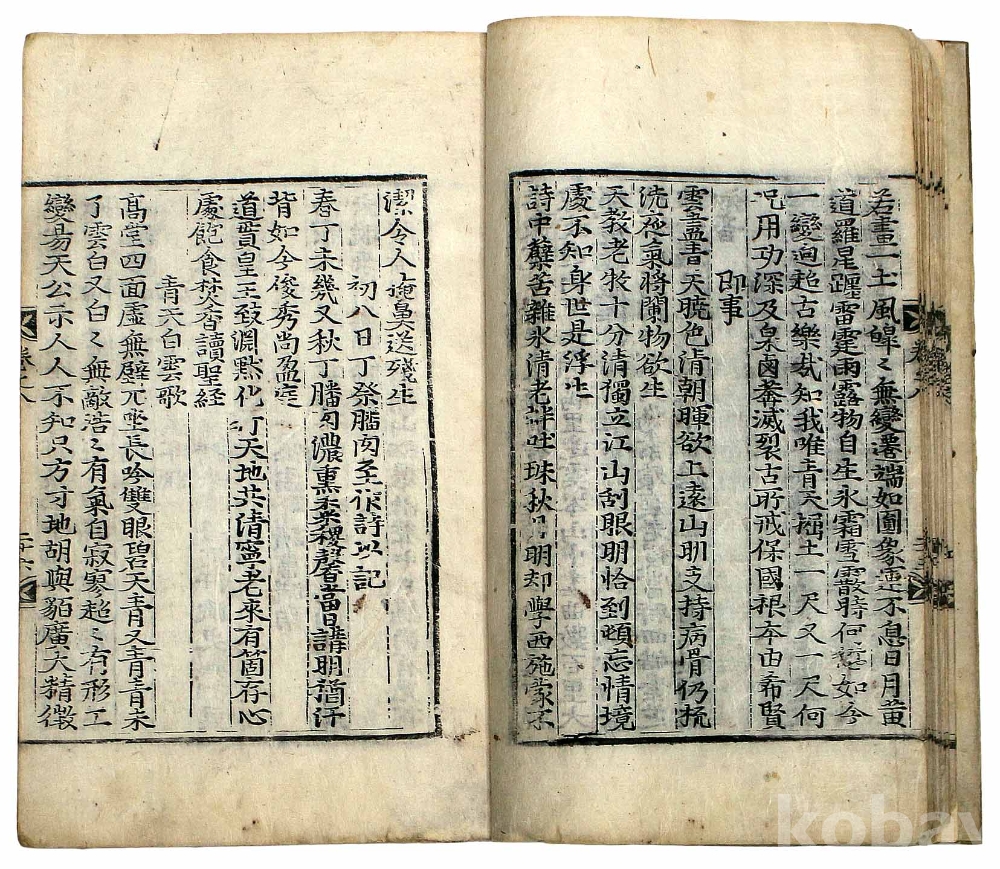 若畫一土風皥〻無變遷端如圖象不息日月黃
道羅星躔雷霆雨露物自生氷霜雪霰時何愆如今
一變逈超古樂哉知我唯青天掘土一尺又一尺何
况用功深及泉鹵莽滅裂古所戒保國根本由希賢
即事
雲盡青天曉色清朝暉欲上遠山明支持病骨仍梳
洗夜氣將闌物欲生
天教老牧十分清獨立江山刮眼明恰到頓忘情境
處不知身世是浮生
詩中蘖苦雜氷清老蚌吐珠秋月明却學西施蒙不
潔令人掩鼻送殘生
初八日丁祭膰肉至作詩以記
春丁未幾又秋丁膰肉濃熏黍稷馨當日講明猶汗
背如今俊秀尚盈庭
道貫皇王致淵默化行天地共清寧老來有箇存心
處飽食焚香讀聖經
青天白雲歌
高堂四面虛無壁兀坐長吟雙眼碧天青又青青未
了雲白又白〻無敵浩〻有氣自寂寥超〻有形工
變易天公示人人不知只方寸地胡與貊廣大精微
卷之八
kobay